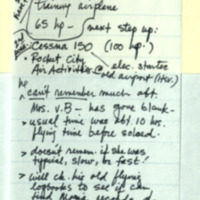 training airplane
65 hp - next step up:
Cessna 150 (100 hp.)
Rocket City
Air Activities @ elec. starter
old airport
he can't remember much abt.
Mrs. v.B - has gone blank.
usual time was abt. 10 hrs.
flying time before soloed.
> doesn't remem. if she was
typical, slow, or fast!
> will ck. his old flying
logbooks to see if can
find